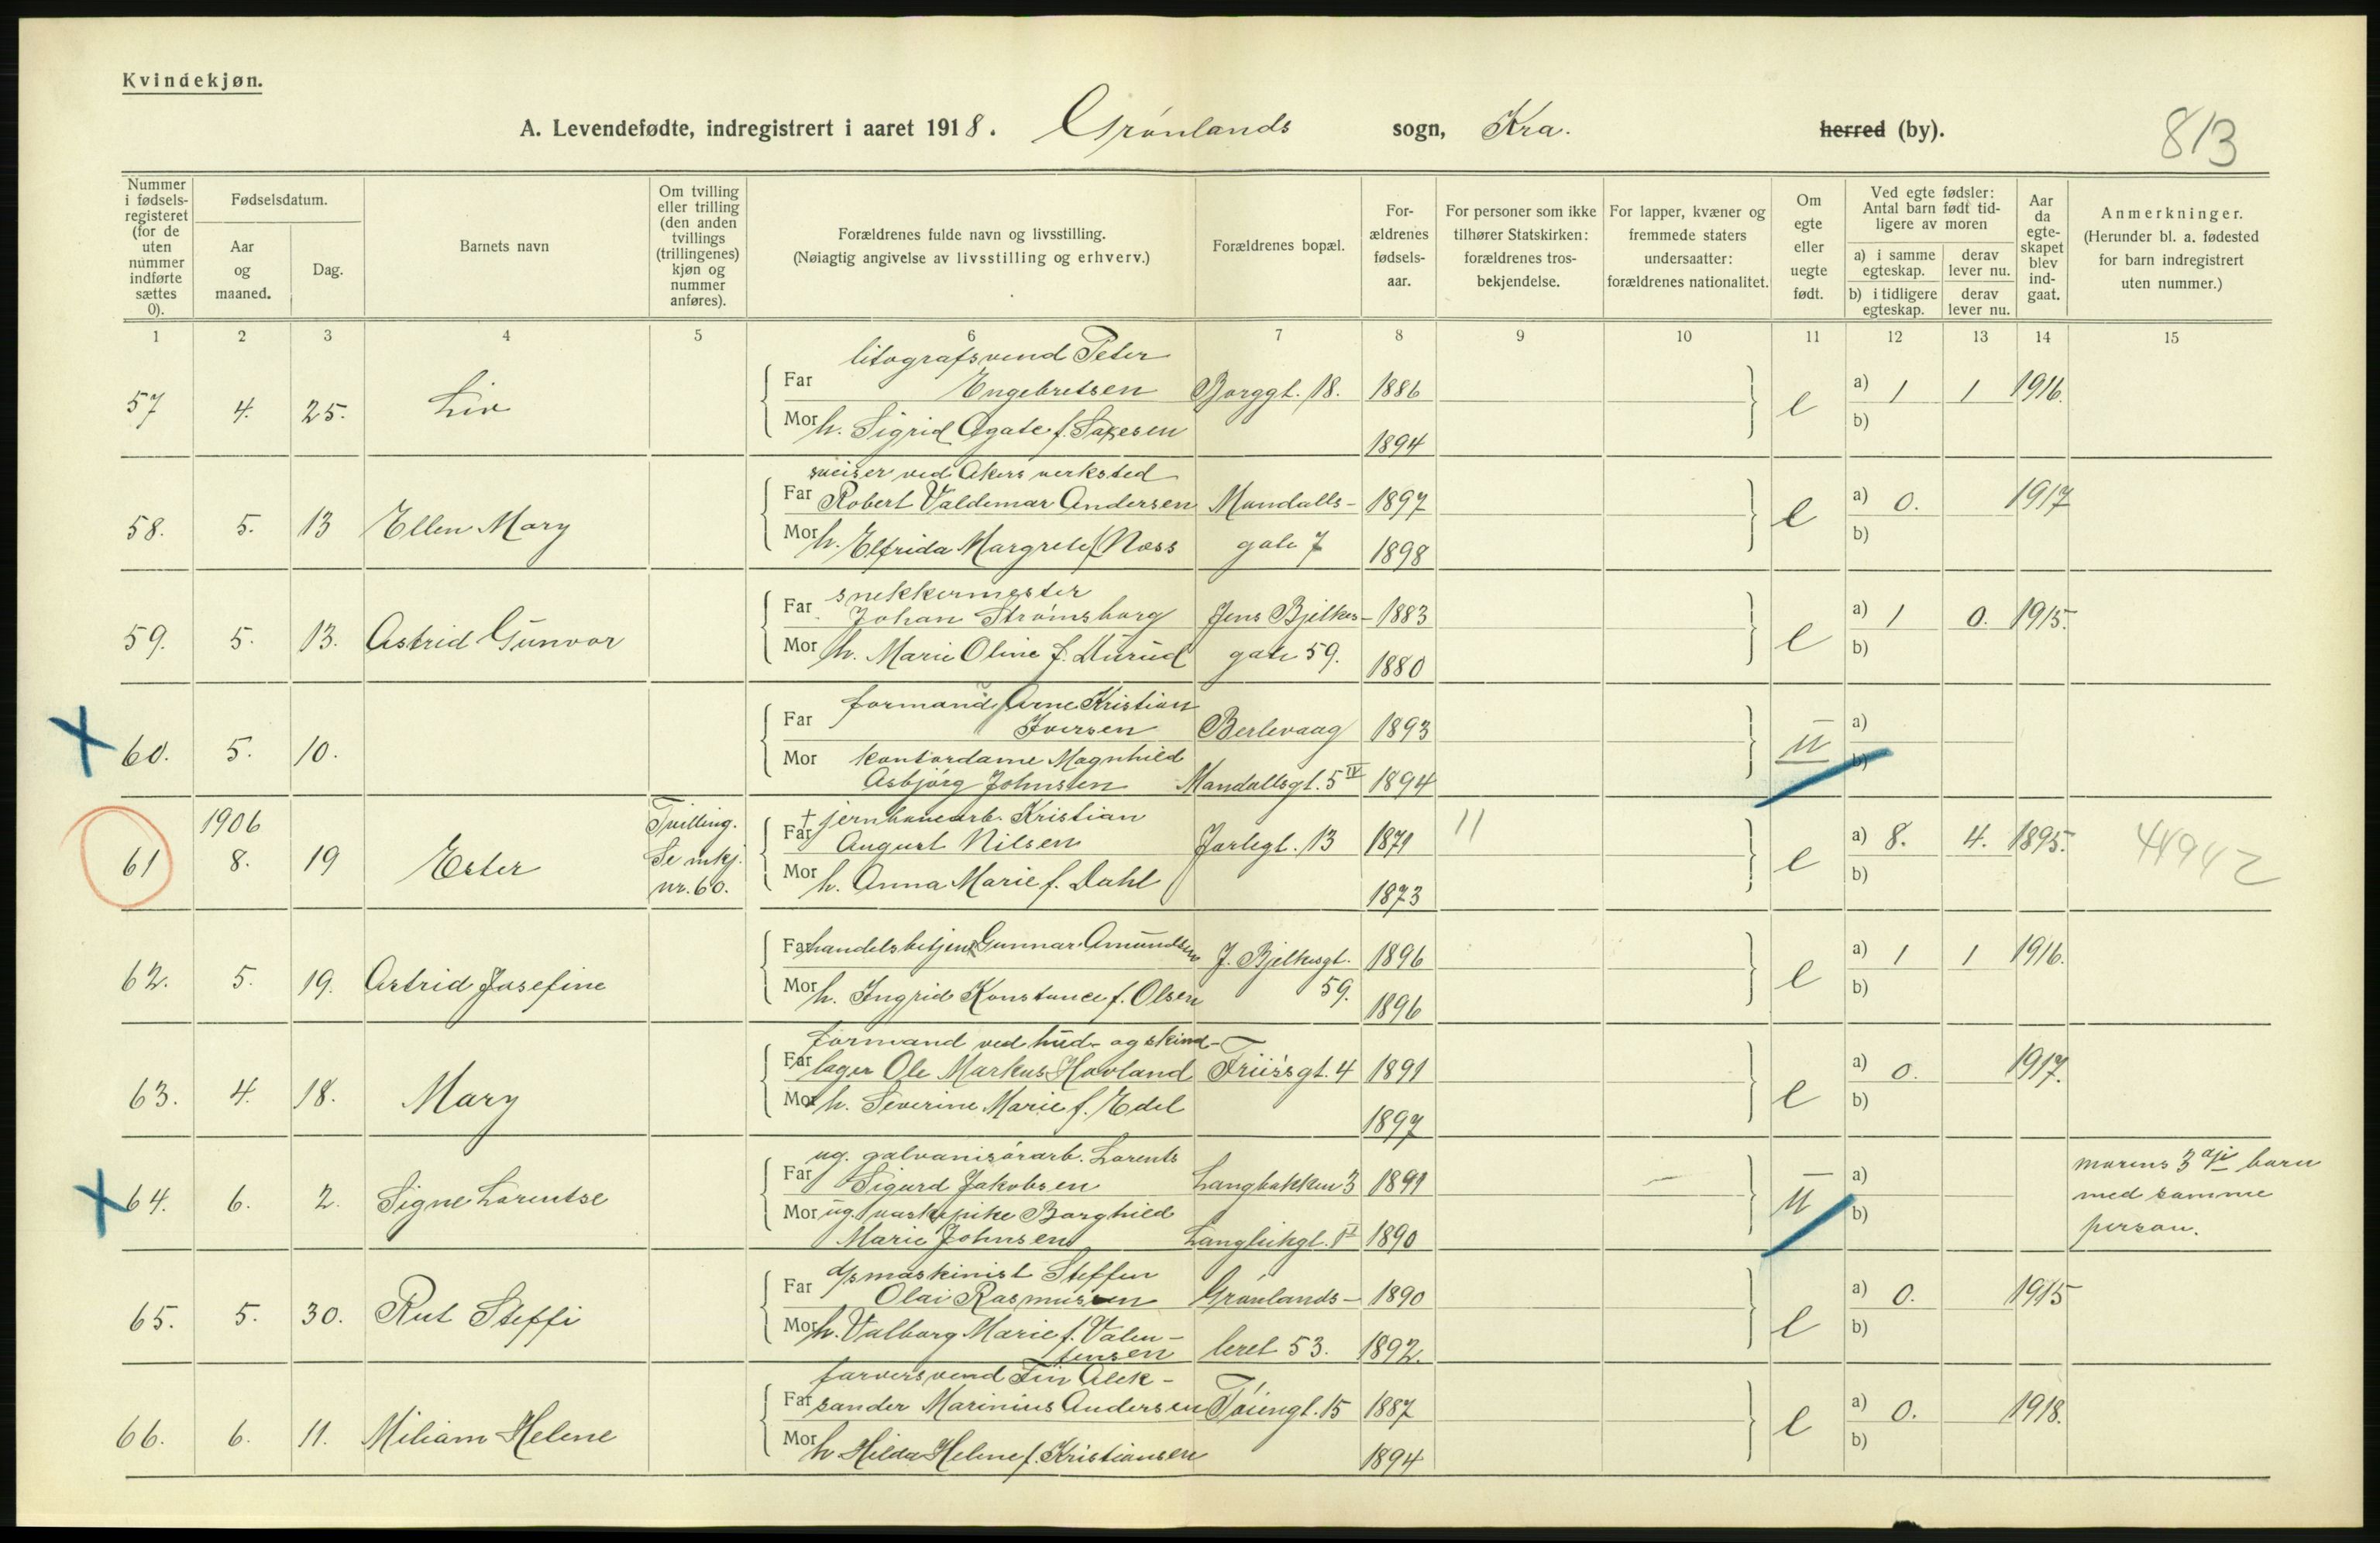 Kvindekjøn.
A. Levendefødte, indregistrert i aaret 1918. Grønlands sogn, Kra. herred (by). 813
Nummer i fødselsregisteret (for de uten nummer indførte sættes 0).
Fødselsdatum.
Aar og maaned.
Dag.
Barnets navn
Om tvilling eller trilling (den anden tvillings (trillingenes) kjøn og nummer anføres).
Forældrenes fulde navn og livsstilling.
(Nøiagtig angivelse av livsstilling og erhverv.)
Forældrenes bopæl.
Forældrenes fødselsaar.
For personer som ikke tilhører Statskirken: forældrenes trosbekjendelse.
For lapper, kvæner og fremmede staters undersaatter: forældrenes nationalitet.
Om egte eller uegte født.
Ved egte fødsler: Antal barn født tidligere av moren
a) i samme egteskap. derav lever nu.
b) i tidligere egteskap. derav lever nu.
Aar da egteskapet blev indgaat.
Anmerkninger.
(Herunder bl. a. fødested for barn indregistrert uten nummer.)
1 2 3 4 5 6 7 8 9 10 11 12 13 14 15
litografsvend Peter
Far Engebretsen Borggt. 18. 1886 a) 1 1 1916.
57 4. 25. Liv e
Mor h. Sigrid Agate f. 1894 b)
sveiser ved Akers verksted
Far Robert Valdemar Andersen Mandalls- 1897 a) 0. 1917
58. 5. 13 Ellen Mary e
Mor h. Elfrida Margrete f. Næss gate 7 1898 b)
snekkermester
Far Johan Strømsborg Jens Bjelkes- 1883 a) 1 0. 1915.
59. 5. 13. Astrid Gunvor e
Mor h. Marie Oline f. gate 59. 1880 b)
formand Arne Kristian
Far Iversen Berlevaag 1893 a)
60. 5. 10. u
Mor kontordame Magnhild b)
Asbjørg Johnsen Mandallsgt. 5 IV 1894
1906 Tvilling. † jernhavearb. Kristian
Far August Nilsen Jarlegt. 13 1871 11 a) 8. 4. 1895.
61 8. 19 Ester Se mkj. nr. 60. e 44942
Mor h. Anna Marie f. Dahl 1873 b)
Far handelsbetjent Gunnar Amundsen J. Bjelkesgt. 1896 a) 1 1 1916.
62. 5. 19. Astrid Josefine e
Mor h. Ingrid Konstance f. Olsen 59. 1896 b)
formand ved hud- og skind-
Far lager Ole Markus Hovland Friisgt. 4 1891 a) 0. 1917.
63. 4. 18. Mary e
Mor h. Severine Marie f. Edel 1897 b)
ug. galvanisørarb. Lorents
Far Sigurd Jakobsen Langbakken 3 1891 a) morens 3dje barn
64. 6. 2. Signe Lorentse u med samme
Mor ug. vaskepike Borghild b) person.
Marie Johnsen 1890
d/s maskinist Steffen
Far Olai Rasmussen Grønlands- 1890 a) 0. 1915
65. 5. 30. Rut Steffi e
Mor h. Valborg Marie f. Valen- b)
tinsen leret 53. 1892.
farversvend Fin Alek-
Far sander Marinius Andersen Tøiengt. 15 1887 a) 0. 1918.
66. 6. 11. Miliam Helene e
Mor h. Hilda Helene f. Kristiansen 1894 b)